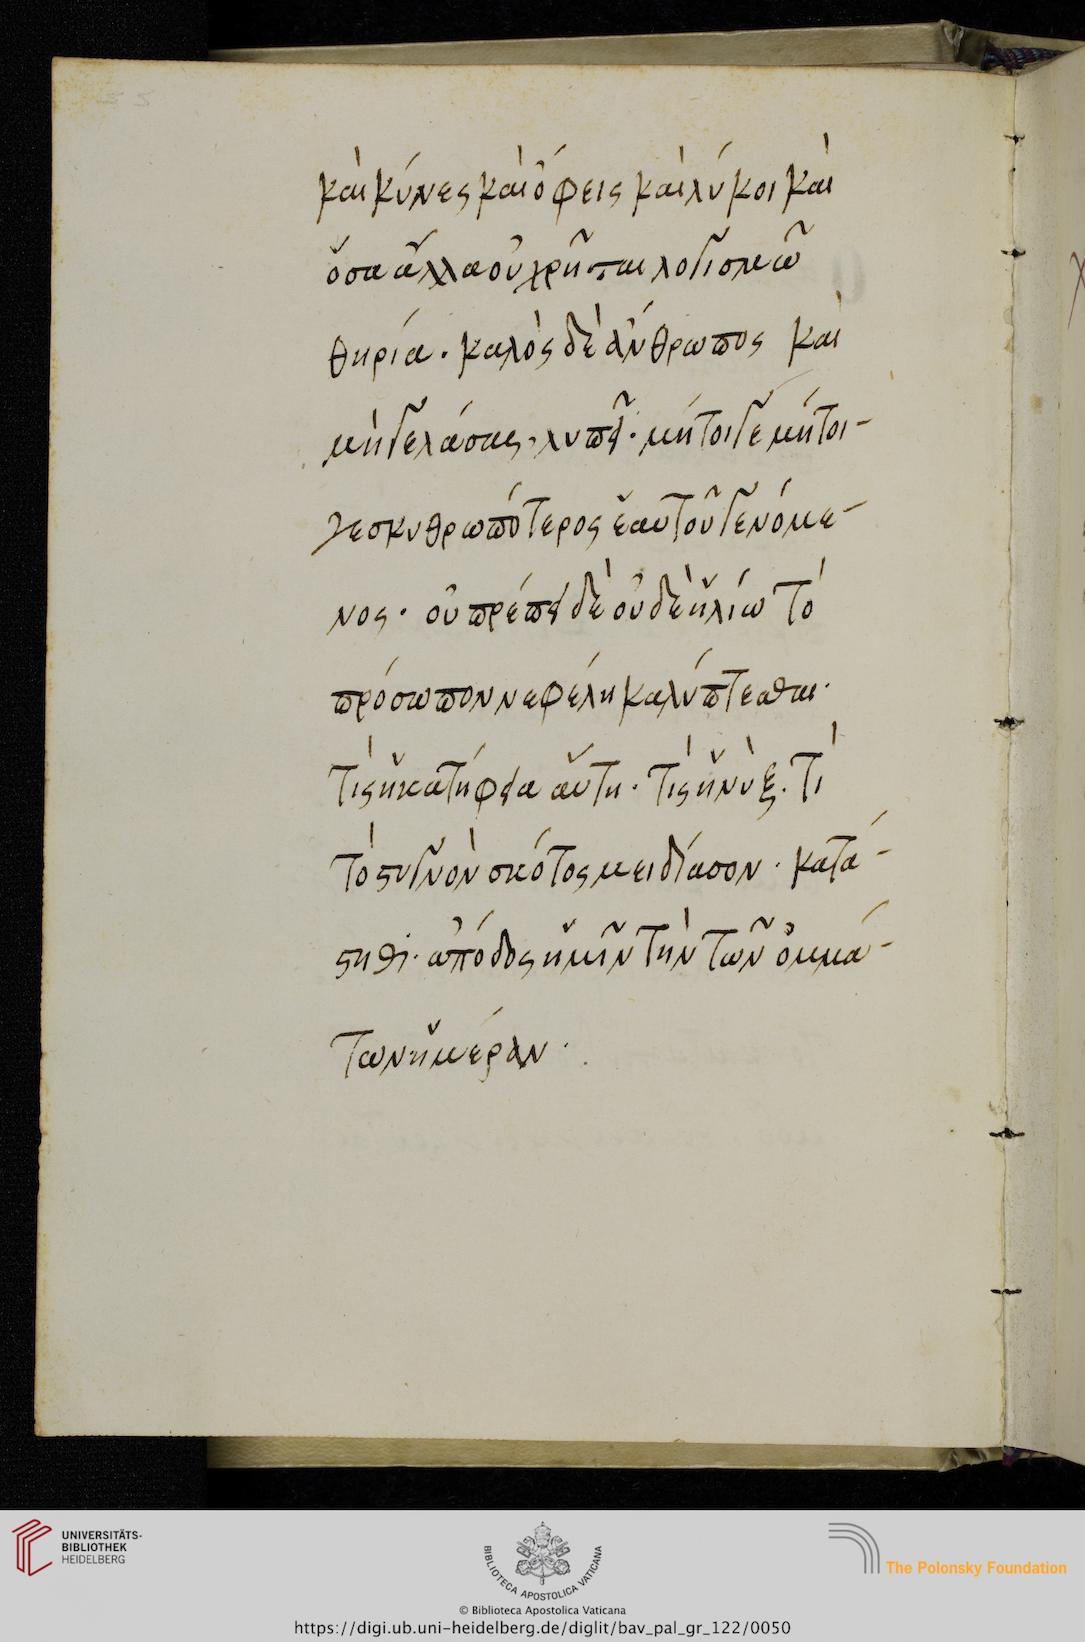 55
καὶ κύνες καὶ ὄφεις καὶ λύκοι καὶ
ὅσα ἄλλα οὐ χρῆται λογισμῶ
θηρία. καλὸς δὲ ἄνθρωπος καὶ
μὴ γελάσας, λυπεῖ. μήτοιγε μήτοι-
γε σκυθρωπότερος ἑαυτοῦ γενόμε-
νος. οὐ πρέπει δὲ οὐδὲ ἡλίω τὸ
πρόσωπον νεφέλη καλύπτεσθαι.
τίς ἡ κατήφεια αὕτη. τίς ἡ νὺξ. τί
τὸ στυγνὸν σκότος μειδίασον. κατά-
στηθι. ἀπόδος ἡμῖν τὴν τῶν ὀμμά-
των ἡμέραν.
UNIVERSITÄTS-
BIBLIOTHEK
HEIDELBERG
BIBLIOTECA APOSTOLICA VATICANA
The Polonsky Foundation
© Biblioteca Apostolica Vaticana
https://digi.ub.uni-heidelberg.de/diglit/bav_pal_gr_122/0050